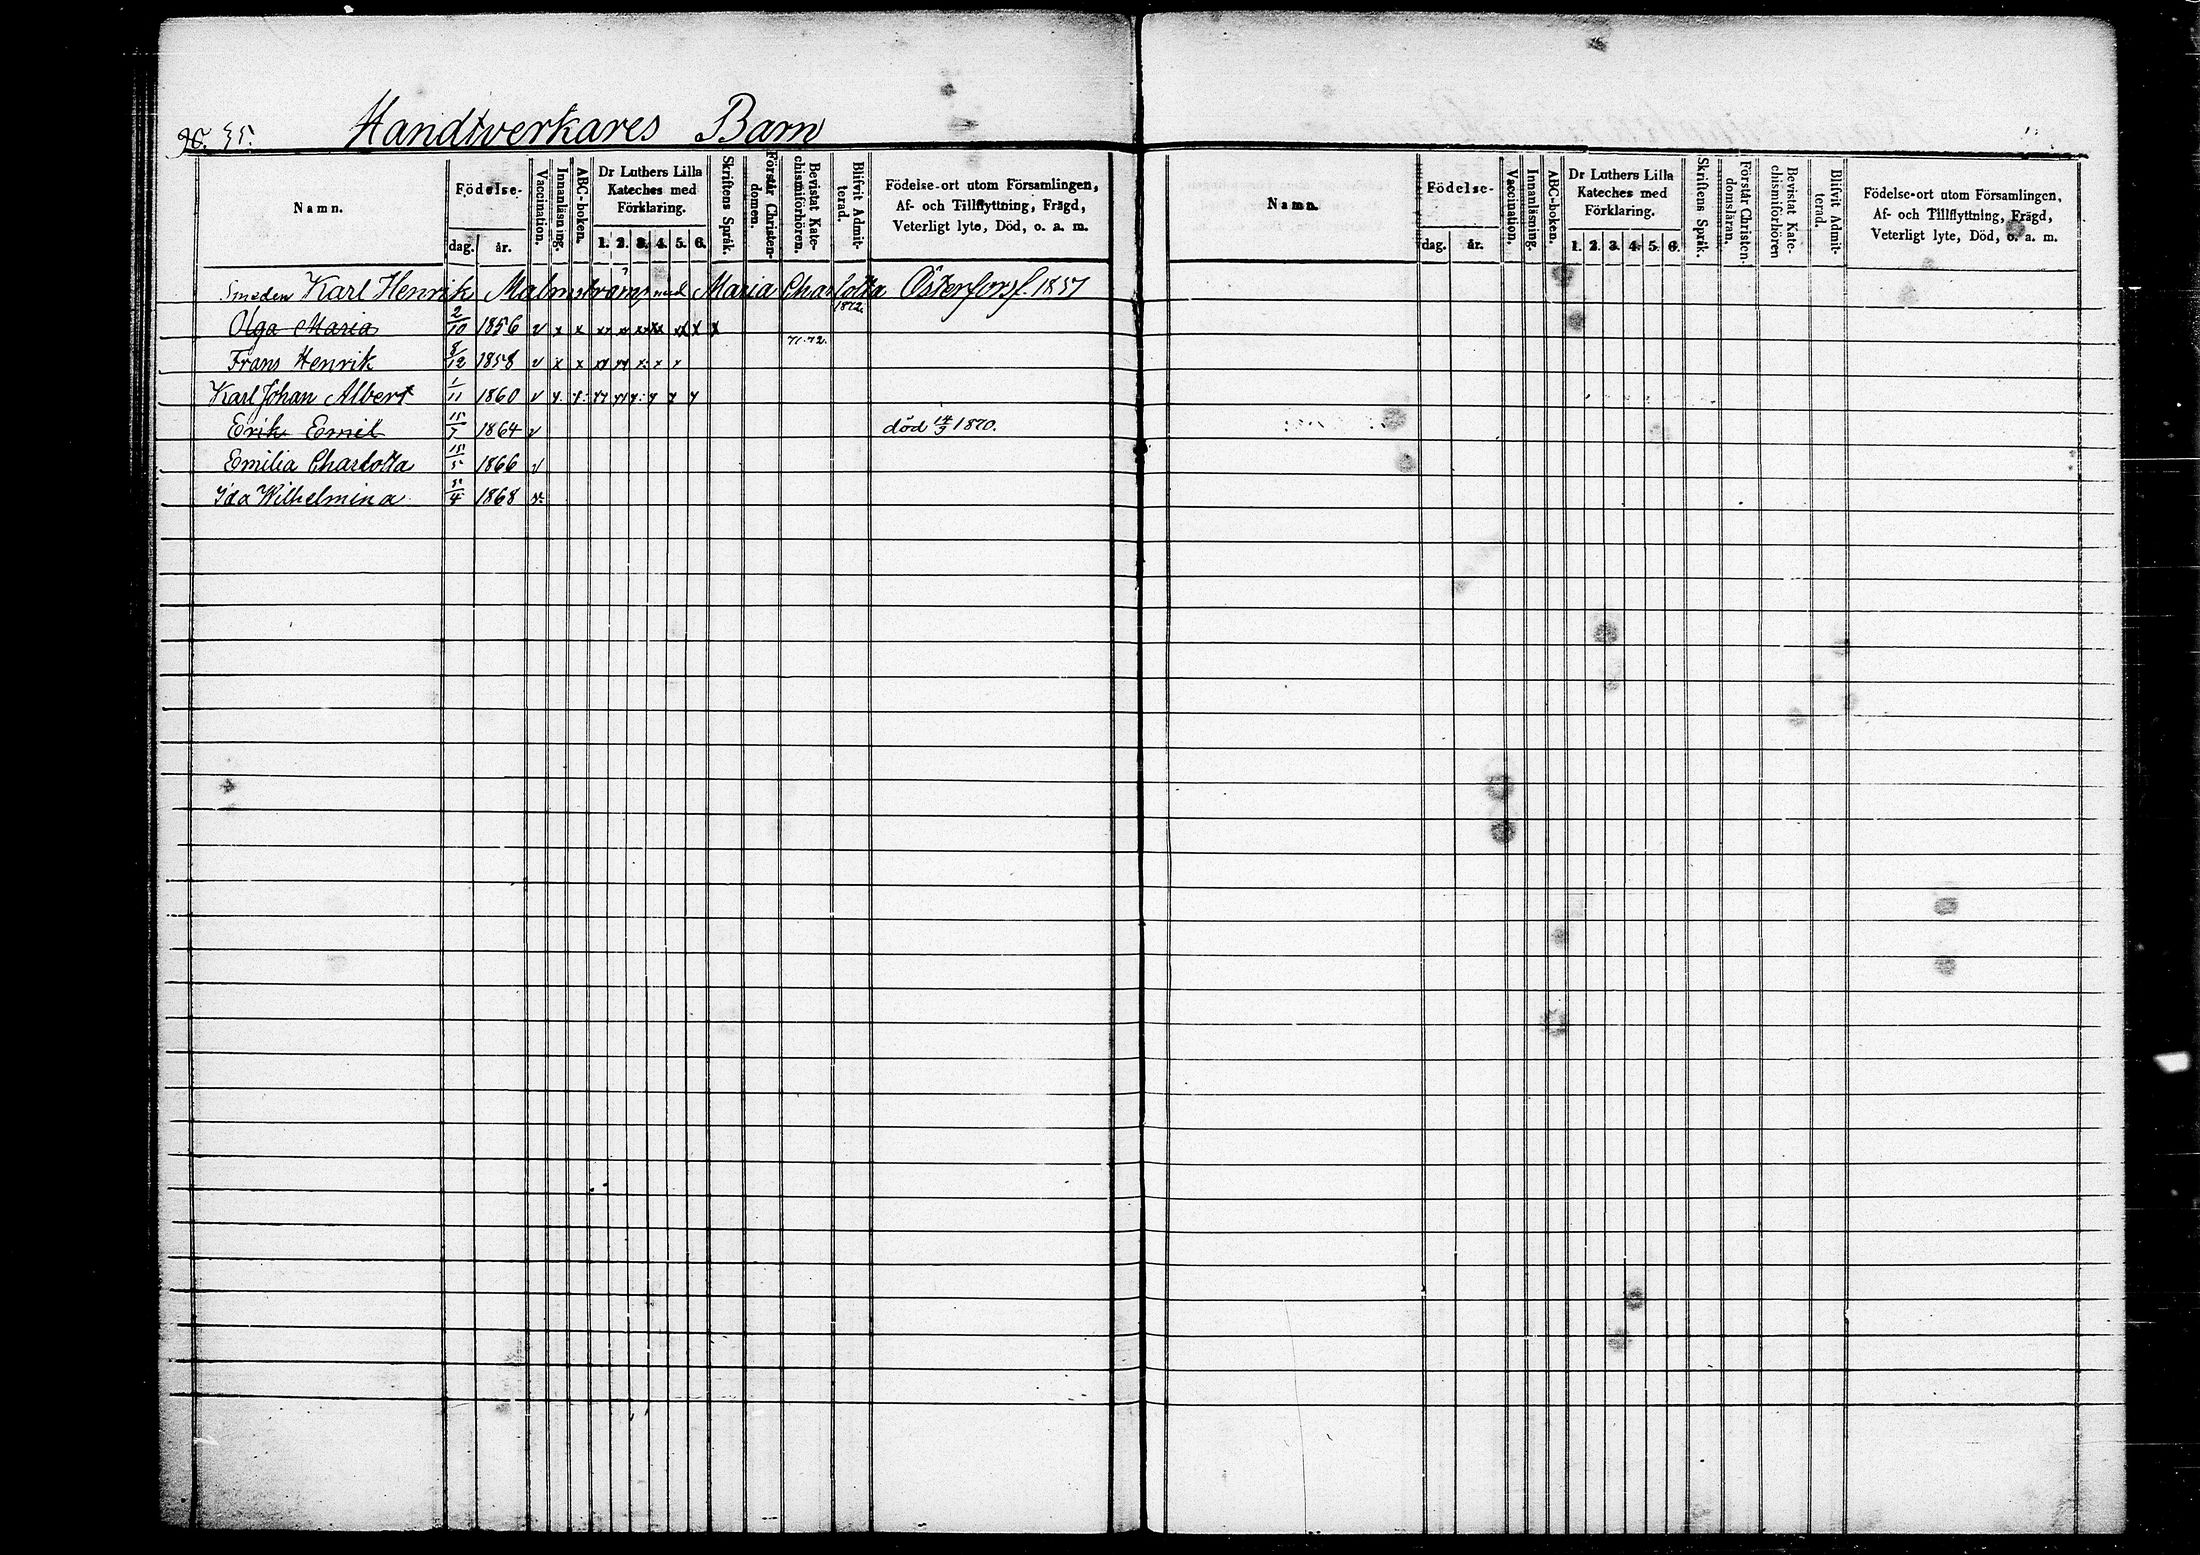 Handtverkares Barn
Namn.
Födelse-
dag. år.
Vaccination.
Innanläsning.
ABC-boken.
Dr Luthers Lilla
Kateches med
Förklaring.
1. 2. 3. 4. 5. 6.
Skriftens Språk.
Förstår Christen-
domen.
Bevistat Kate-
chismiförhören.
Blifvit Admit-
terad.
Födelse-ort utom Församlingen,
Af- och Tillflyttning, Frägd,
Veterligt lyte, Död, o. a. m.
Smeden Karl Henrik Malmströms med Maria Charlotta Österforsf. 1857
1872.
Olga Maria 2/10 1856 v x x
71.72.
Frans Henrik 8/12 1858 v x x
Karl Johan Albert 1/11 1860 v
Erik Emil 15/7 1864 v död 14/3 1870.
Emilia Charlotta 15/5 1866 v
Ida Wilhelmina 5/4 1868 v.
Namn.
Födelse-
dag. år.
Vaccination.
Innanläsning.
ABC-boken.
Dr Luthers Lilla
Kateches med
Förklaring.
1. 2. 3. 4. 5. 6.
Skriftens Språk.
Förstår Christen-
domsläran.
Bevistat Kate-
chismiförhören
Blifvit Admit-
terad.
Födelse-ort utom Församlingen,
Af- och Tillflyttning, Frägd,
Veterligt lyte, Död, o. a. m.